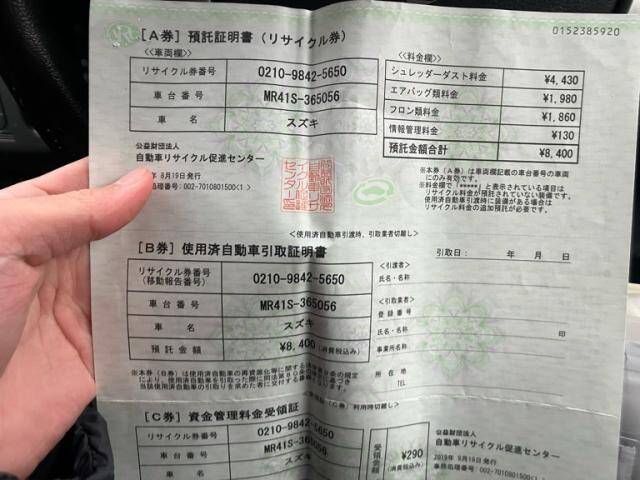 0152385920
[A券] 預託証明書 (リサイクル券)
<<車両欄>>
リサイクル券番号 0210-9842-5650
車台番号 MR41S-365056
車名 スズキ
<<料金欄>>
シュレッダーダスト料金 ¥4,430
エアバッグ類料金 ¥1,980
フロン類料金 ¥1,860
情報管理料金 ¥130
預託金額合計 ¥8,400
公益財団法人
自動車リサイクル促進センター
年 8月19日発行
処理番号:002-7010801500(1)
※本券(A券)は車両欄記載の車台番号の車両
にのみ有効です。
※料金欄で「*****」と表示されている項目は
リサイクル料金が預託されていない装備です。
使用済自動車引渡時に装備がある場合は
リサイクル料金の追加預託が必要です。
<使用済自動車引渡時、引取業者切離し>
[B券] 使用済自動車引取証明書
引取日: 年 月 日
リサイクル券番号
(移動報告番号) 0210-9842-5650
車台番号 MR41S-365056
車名 スズキ
預託金額 ¥8,400 (消費税込み)
<引渡者>
氏名・名称
<引取業者>
登録番号
氏名・名称 印
事業所名称
所在地
TEL
※本券(B券)は使用済自動車の再資源化等に関する
[C券] 資金管理料金受領証
リサイクル券番号 0210-9842-5650
車台番号 MR41S-365056
車名 スズキ
受領金額 ¥290
(消費税込み)
公益財団法人
自動車リサイクル促進センター
2019年 8月19日発行
事務処理番号:002-7010801500(1)